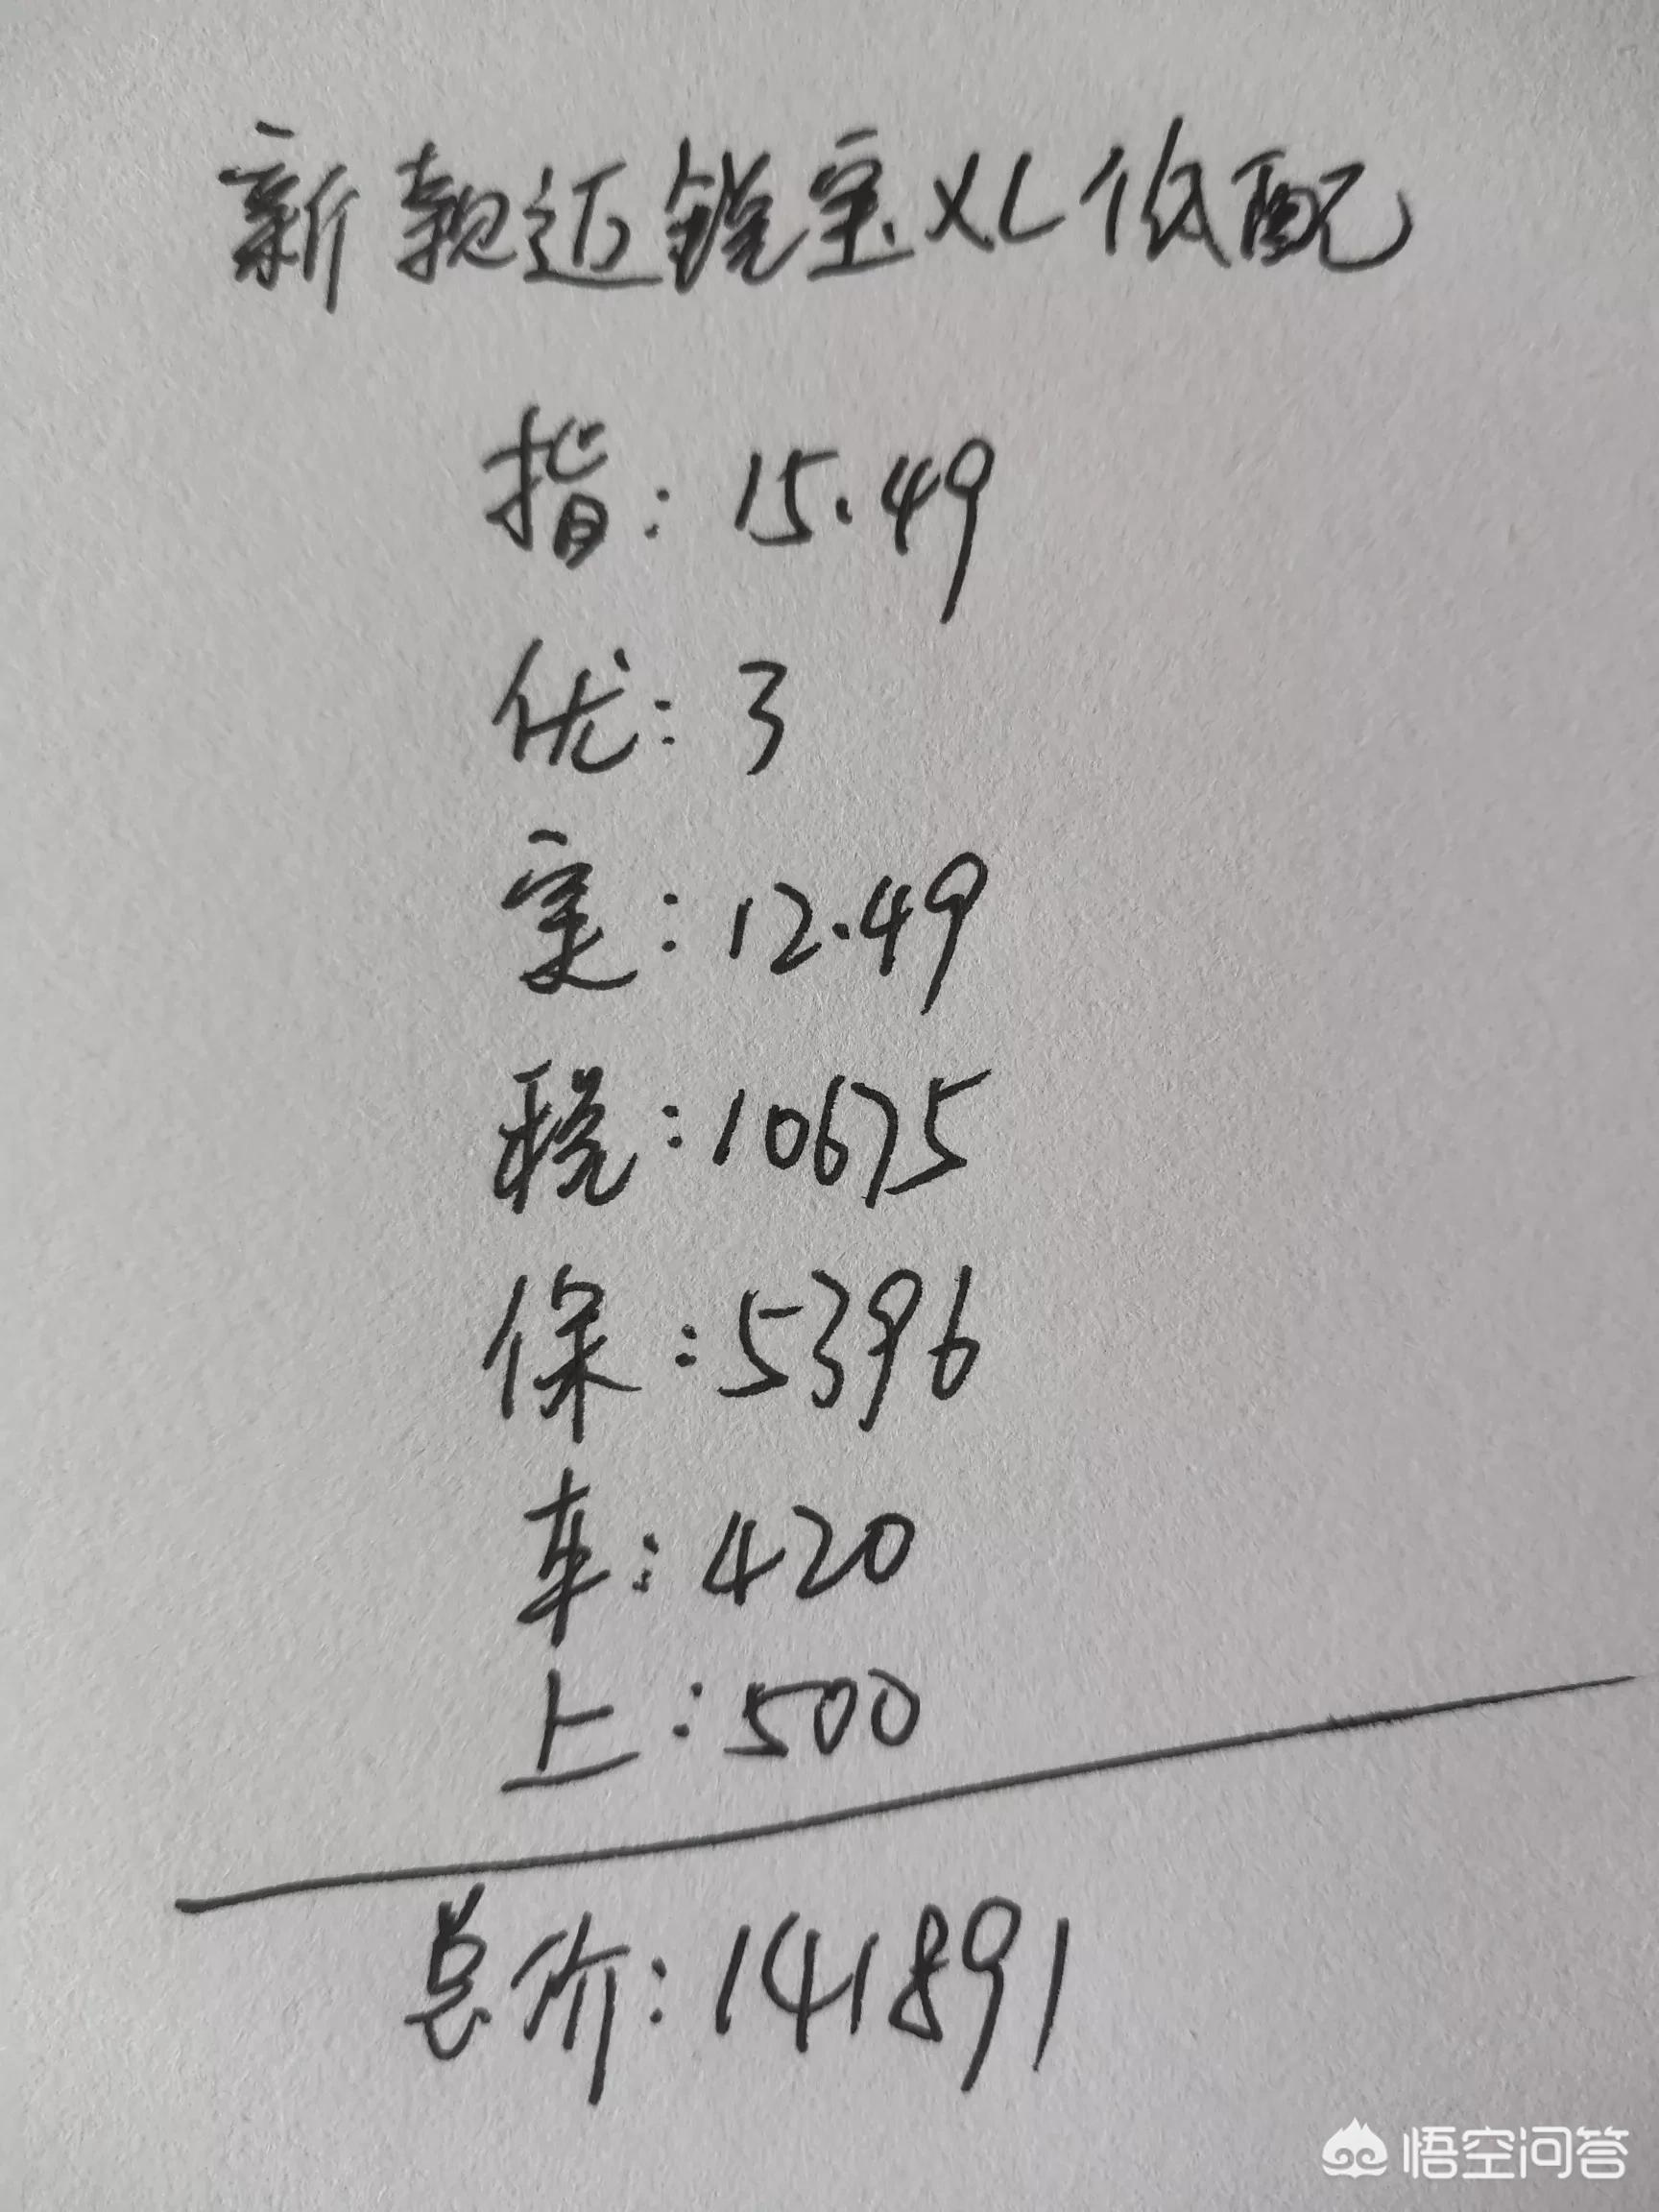 新款迈锐宝XL低配
指:15.49
优:3
实:12.49
税:10675
保:5396
车:420
上:500
总价:141891
悟空问答